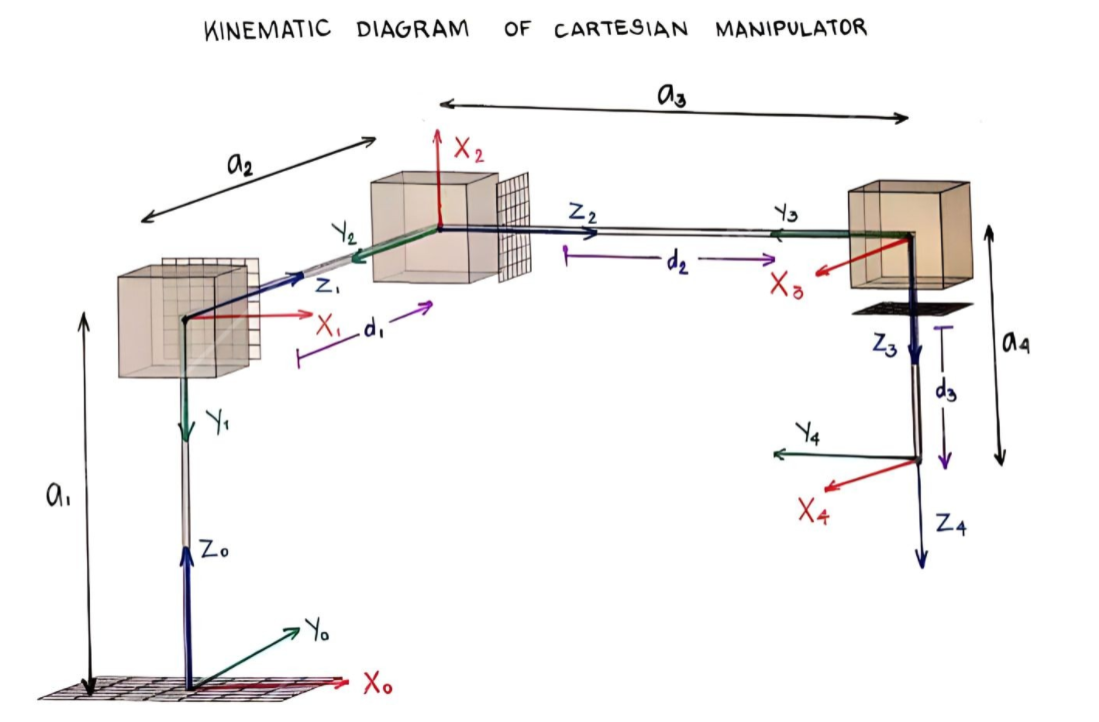 KINEMATIC DIAGRAM OF CARTESIAN MANIPULATOR
a₃
a₂
X₂
Z₂
Y₃
Y₂
d₂
X₃
Z₁
X₁
d₁
Z₃
a₄
d₃
Y₁
Y₄
a₁
X₄
Z₄
Z₀
Y₀
X₀